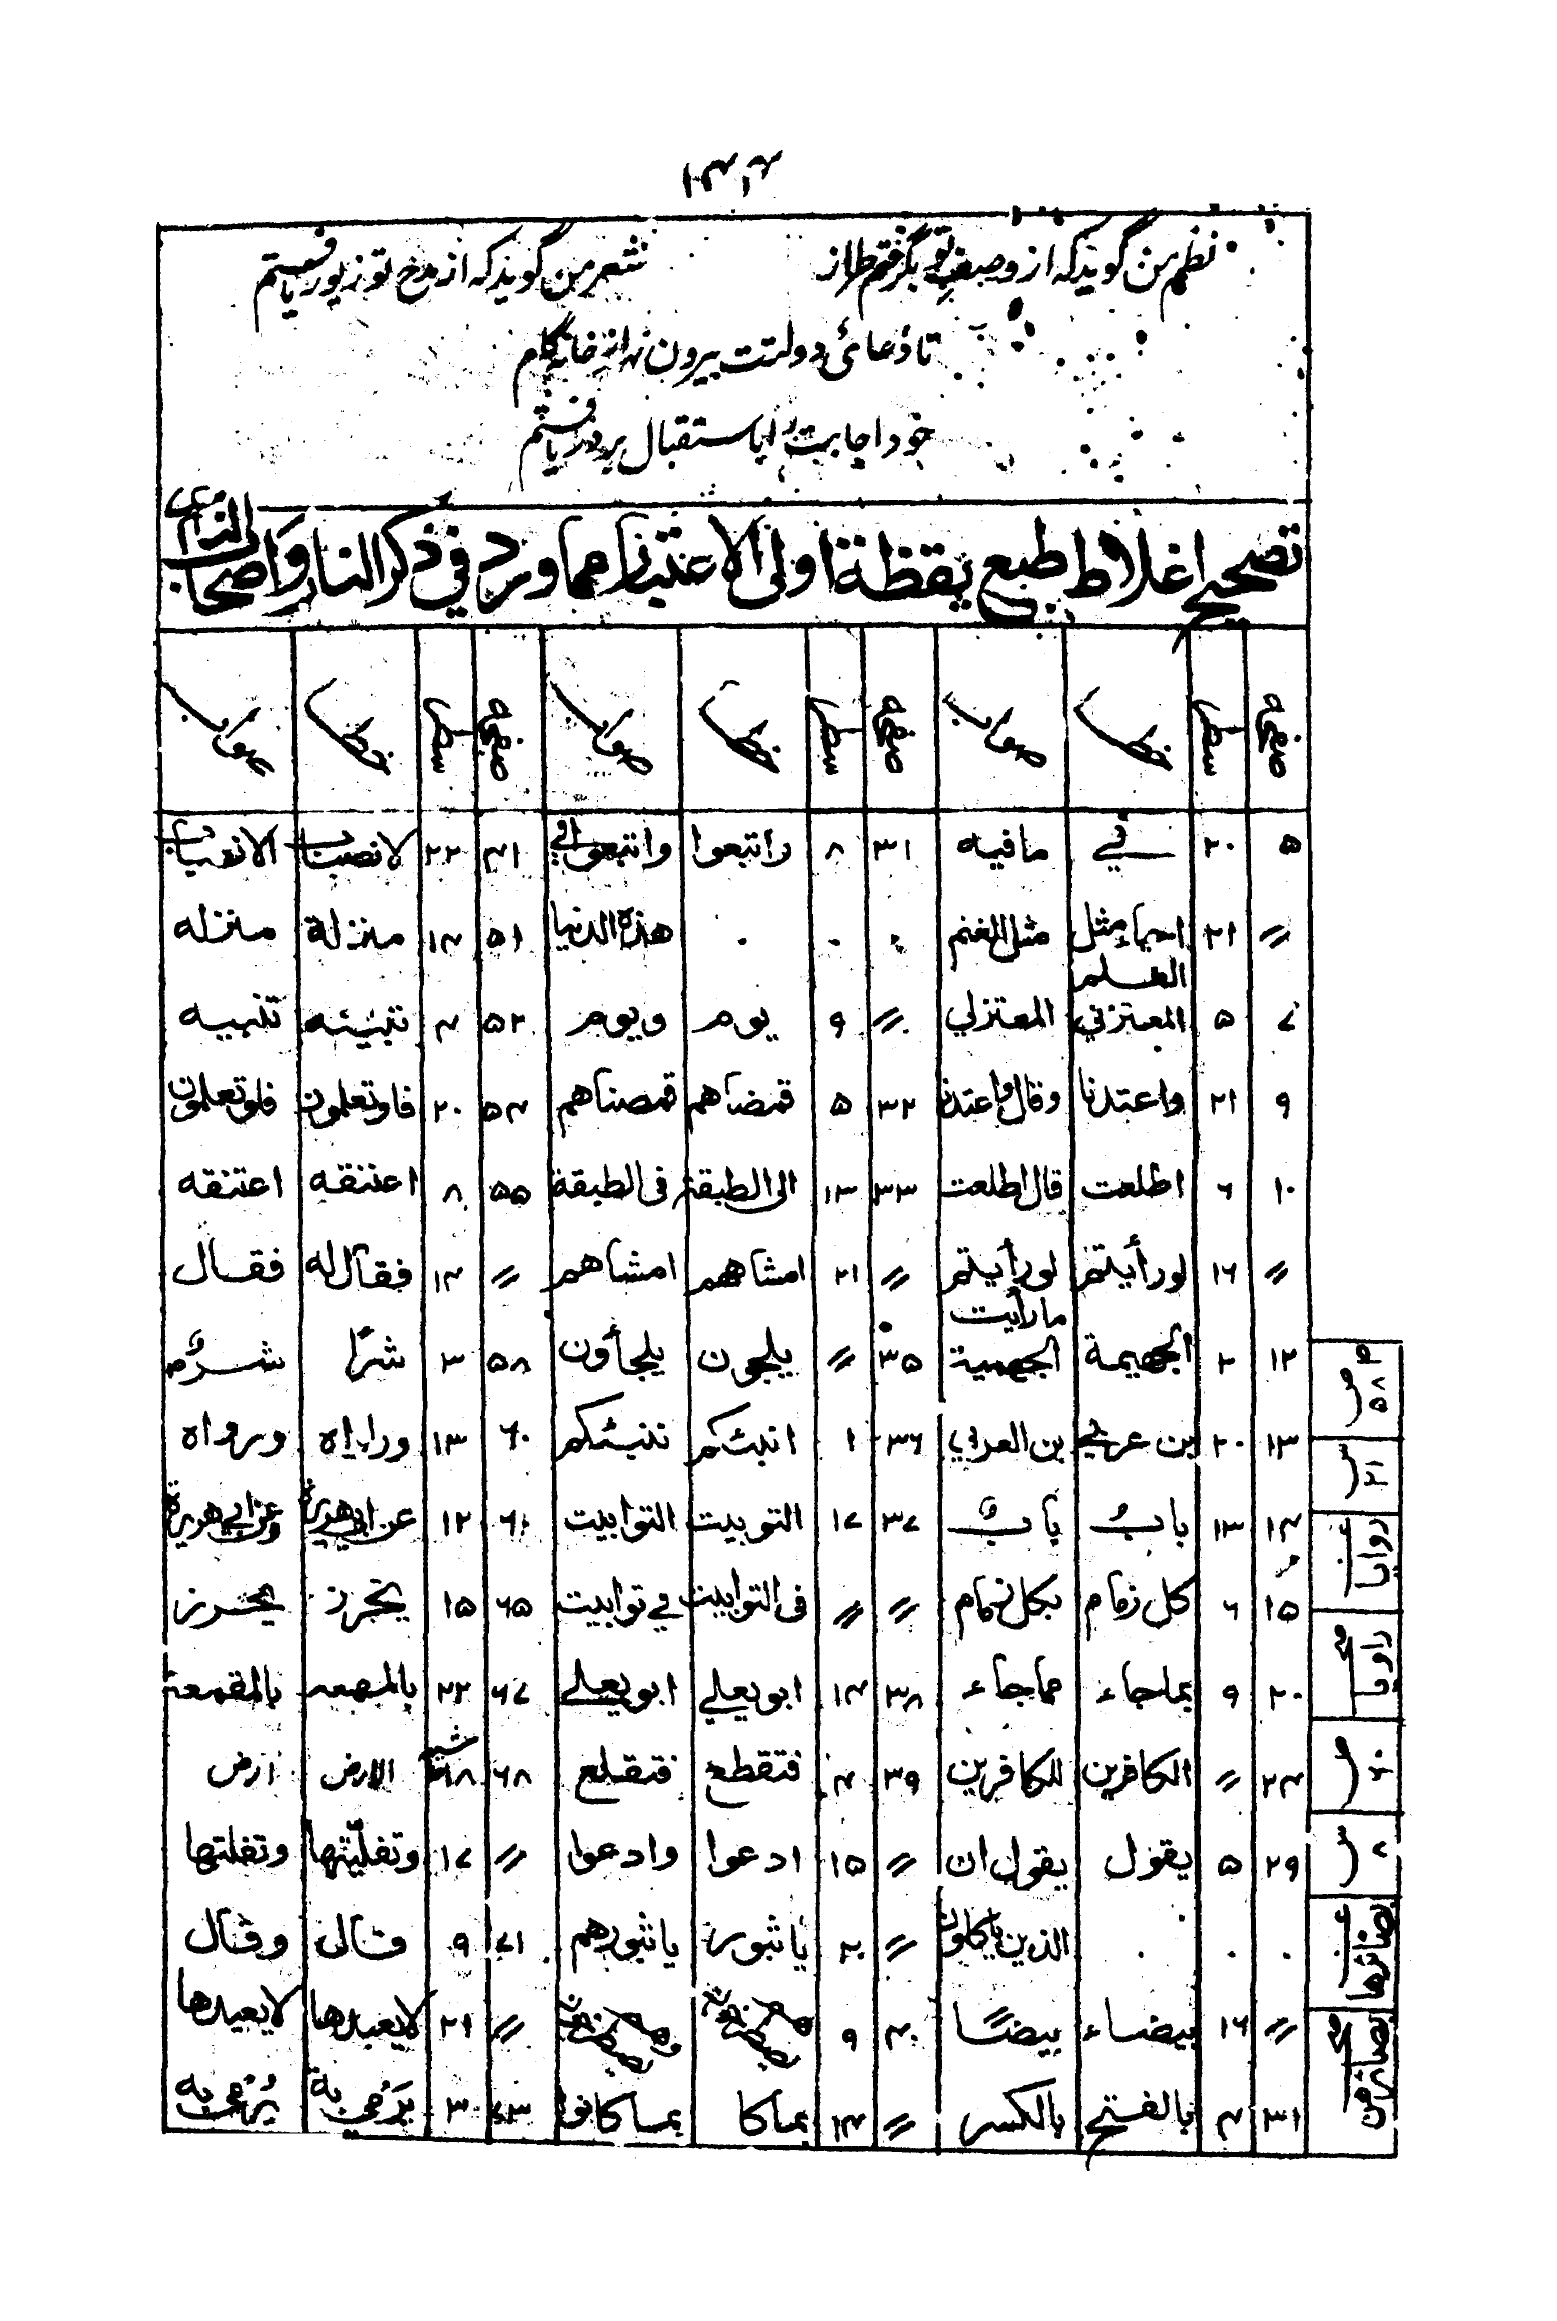 نظم من گوید که از وصف تو بگرفتم طراز شعر من گوید که از مدح تو زیور یافتم
تا دعائ دولتت بیرون نهد از خانه گام
خود اجابت را باستقبال بر در یافتم
تصحيح اغلاط طبع يقظة اولى الاعتبار مما ورد في ذكر النار واصحاب النار
صفحه سطر خطا صواب صفحه سطر خطا صواب صفحه سطر خطا صواب
۵ ۲۰ في مافيه ۳۱ ۸ واتبعوا واتبعوا في ۴۱ ۲۲
〃 ۲۱ احياء مثل الغنم مثل الغنم هذه الدنيا ۵۱ ۱۴ منزلة منزله
۷ ۵ المعتزلي المعتزلي 〃 ۹ يوم ويوم ۵۲ ۴ تنبيه
۹ ۲۱ واعتدنا وقال واعتدنا ۳۲ ۵ قمضاهم قمصناهم ۵۴ ۲۰ فاوتعلمون فلوتعلمون
۱۰ ۶ اطلعت قال اطلعت ۳۳ ۱۳ الى الطبقة في الطبقة ۵۵ ۸ اعننقه اعتنقه
〃 ۱۶ لورأيتم لورأيتم مارأيت 〃 ۲۱ امشاههم امشاهم 〃 ۱۴ فقال له فقال
۱۲ ۲ الجهيمة الجهمية ۳۵ 〃 يلجون يلجأون ۵۸ ۳ شرًا
۱۳ ۲۰ بن عربي بن العربي ۳۶ ۱ انبئكم ننبئكم ۶۰ ۱۳ ورواه
۱۴ ۱۳ باب باب ۳۷ ۱۷ التوبيت التوابيت ۶۱ ۱۲ عن ابي هريرة وعن ابي هريرة
۱۵ ۶ كل زمام بكل زمام 〃 〃 في التوابيت في توابيت ۶۵ ۱۵ يخرز يحرز
۲۰ ۹ بماجاء مماجاء ۳۸ ۱۴ ابويعلي ابويعلي ۶۷ ۲۲ بالمقمعة
۲۴ 〃 الكافرين للكافرين ۳۹ ۴ فتقطع فتقلع ۶۸ ۱۸ الارض ارض
۲۹ ۵ يقول يقول ان 〃 ۱۵ ادعوا وادعوا 〃 ۱۷ وتفلتها
الذين ياكلون 〃 ۲۰ يا ثبور يا ثبورهم ۷۱ ۹ قال وقال
〃 ۱۶ بيضاء بيضًا ۴۰ ۹ 〃 ۲۱ لايعبدها لايعيدها
۳۱ ۴ بالفتح بالكسر 〃 ۱۴ بماكا بماكانوا ۷۳ ۳ يرمي به يرمى به
ص ۵۸۲
س ۲۱
روايا
راويا
ص ۶۰
س ۸
بصائرها